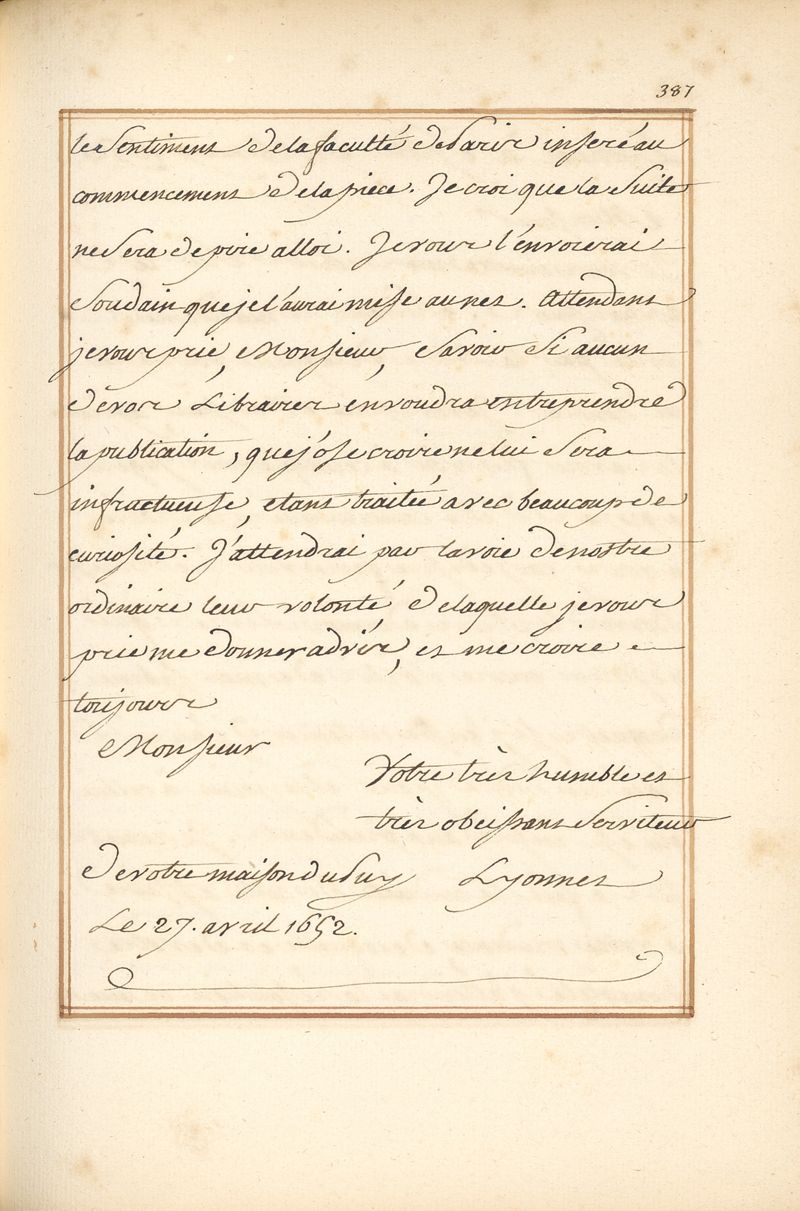 387
le Sentiment de la faculté de Paris inseré au
commencement de la piece. Je croi que la Suite
ne Sera de pire alloi. Je vous l'envoierai
Soudain que je l'aurai mise au net. Attendant
je vous prie, Monsieur, Savoir Si aucun
de vos Libraires en voudra entreprendre
la publication, que j'ose croire ne lui Sera
infractueuse, etant traitée avec beaucoup de
curiosité. J'attendrai par la voie de nostre
ordinaire leur volonté de laquelle je vous
prie me donner advis, et me croire
toujours
Monsieur
Votre très humble et
très obeissant Serviteur
de votre maison du Puy Lyonnet
Le 27. avril 1652.